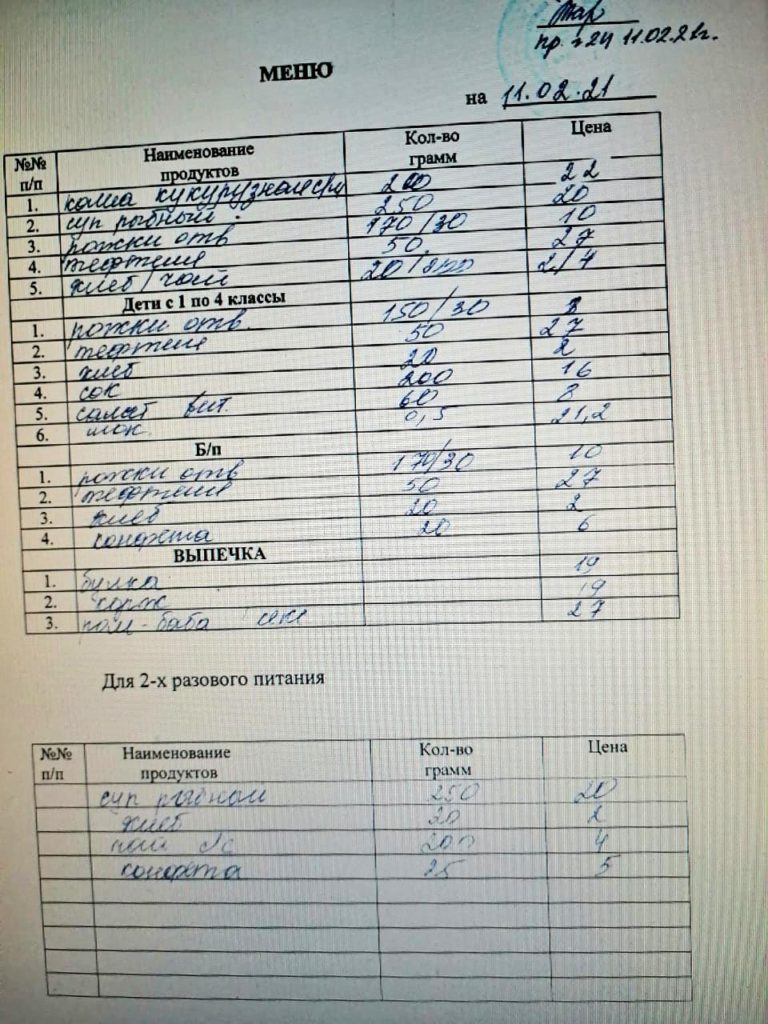 пр. 24 11.02.21г.
МЕНЮ
на 11.02.21
№№ п/п Наименование продуктов Кол-во грамм Цена
1. каша кукурузная 200 22
2. суп рыбный 250 20
3. рожки отв 170/30 10
4. тефтеля 50 27
5. хлеб/чай 20/200 2/4
Дети с 1 по 4 классы
1. рожки отв. 150/30
2. тефтеля 50 27
3. хлеб 20 2
4. сок 200 16
5. салат вит. 60 8
6. 0,5 21,2
Б/п
1. рожки отв 170/30 10
2. тефтеля 50 27
3. хлеб 20 2
4. конфета 20 6
ВЫПЕЧКА
1. булка 19
2. корж 19
3. 27
Для 2-х разового питания
№№ п/п Наименование продуктов Кол-во грамм Цена
суп рыбный 250 20
хлеб 20 2
чай 200 4
конфета 25 5